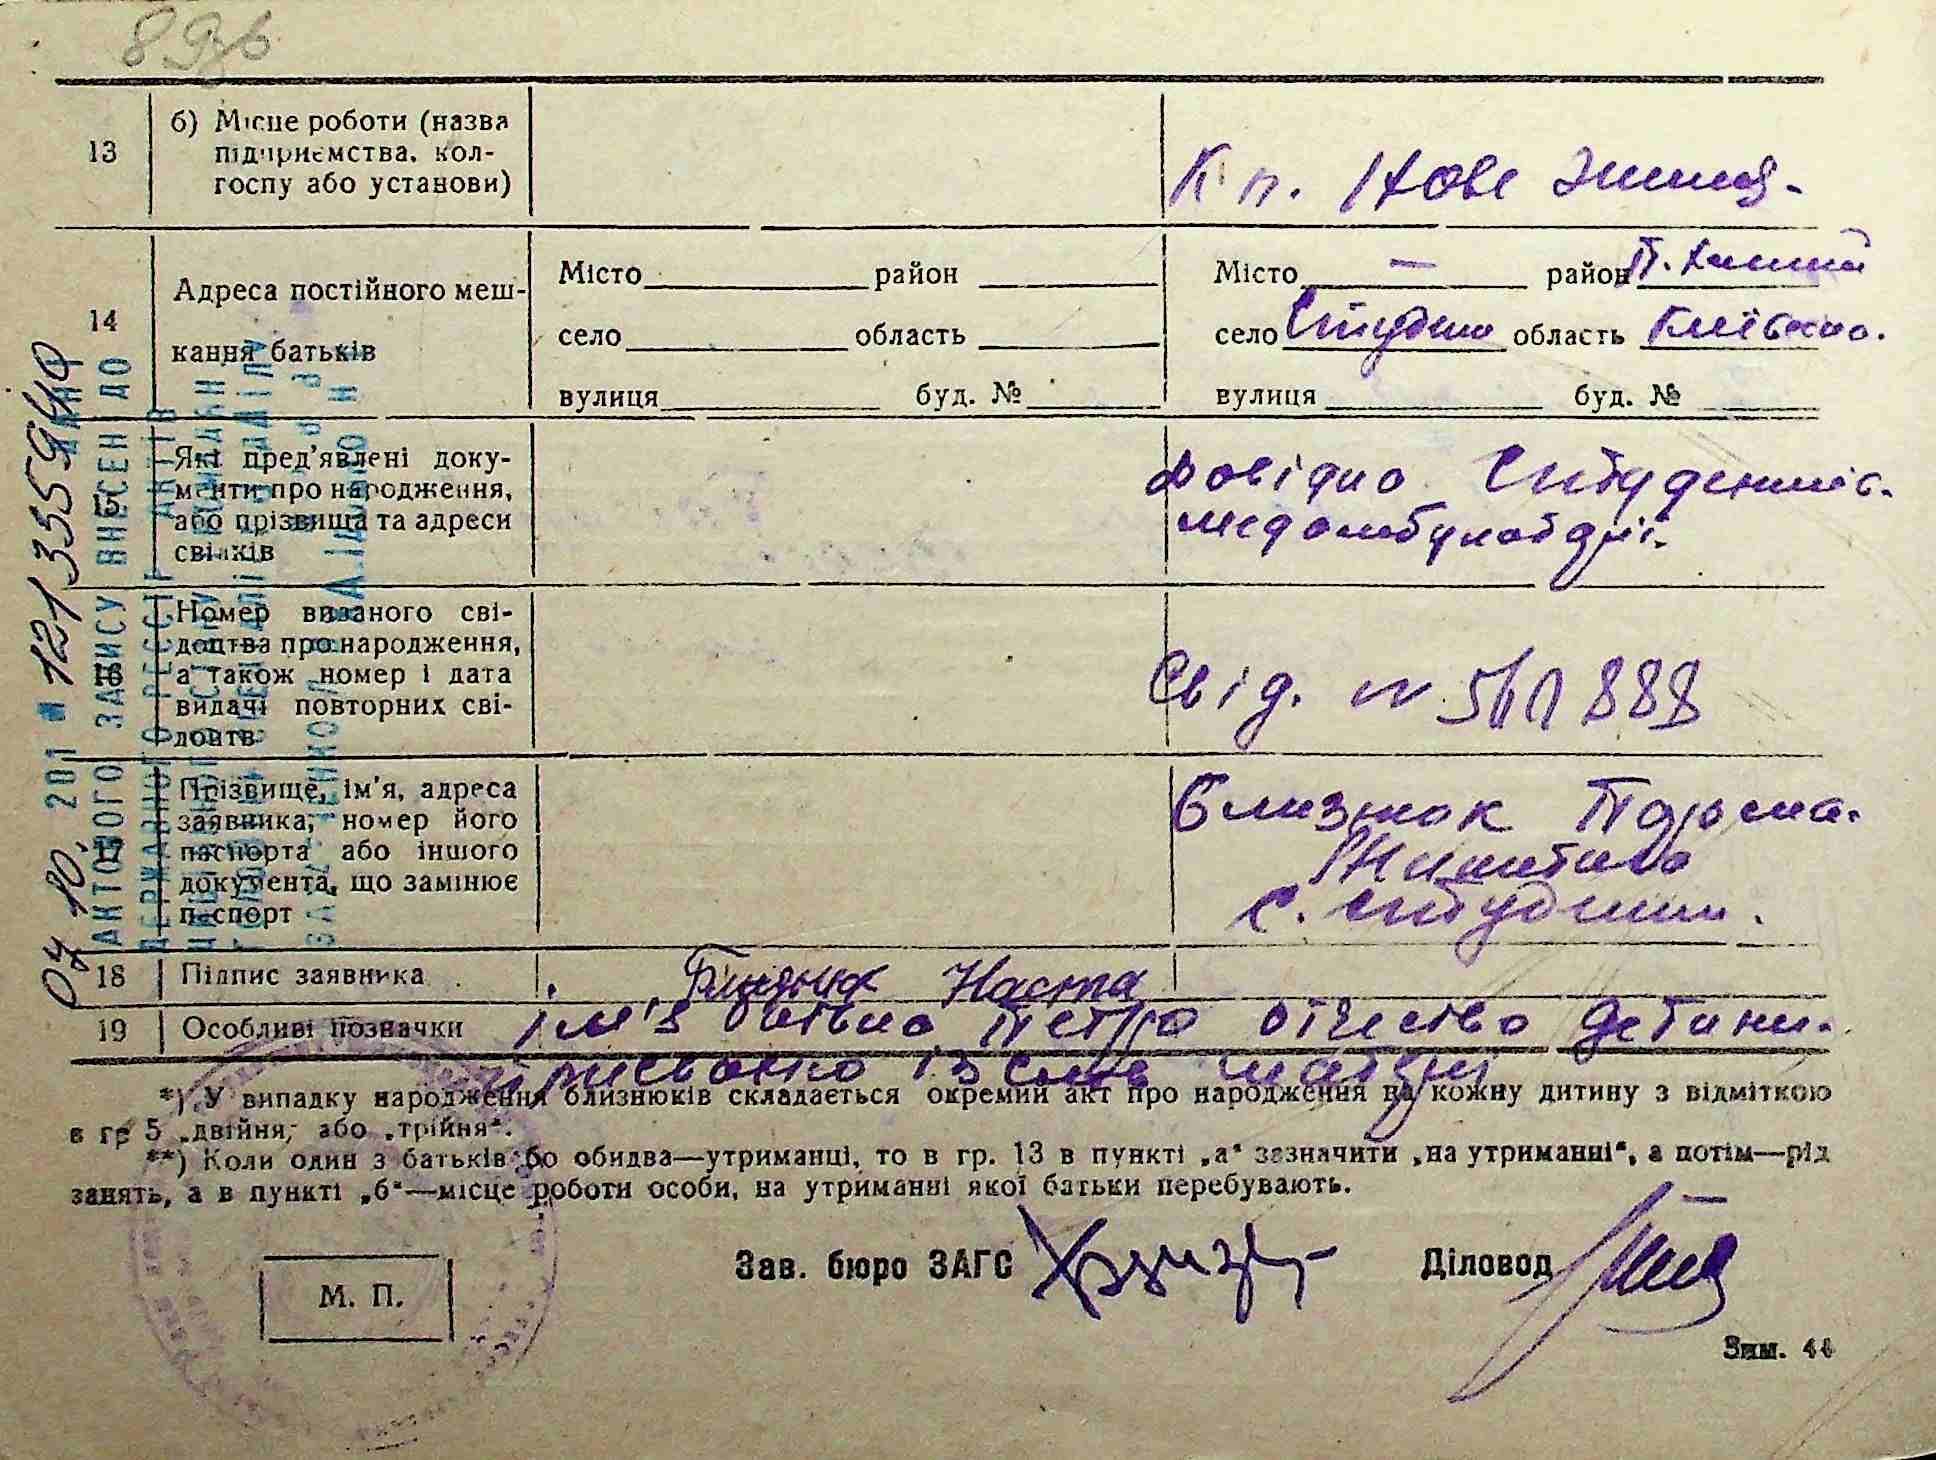 893в
13 б) Місце роботи (назва
підприємства, кол-
госпу або установи)
Кп. Нове життя.
14 Адреса постійного меш-
кання батьків
Місто район
село область
вулиця буд. №
Місто — район П.Хмел
село Студени область Київська.
вулиця буд. №
15 Які пред'явлені доку-
менти про народження,
або прізвища та адреси
свідків
Довідка Студеників.
медамбулаторії.
16 Номер виданого сві-
доцтва про народження,
а також номер і дата
видачі повторних сві-
доцтв
Свід. №
888
17 Прізвище, ім'я, адреса
заявника, номер його
паспорта або іншого
документа, що замінює
паспорт
Близнюк
Микитівна
с. Студеники.
18 Підпис заявника
Близнюк Наста
19 Особливі позначки
ім'я Петро отчество дитини.
присвоєно із слів матері
*) У випадку народження близнюків складається окремий акт про народження на кожну дитину з відміткою
в гр 5 „двійня," або „трійня".
**) Коли один з батьків бо обидва—утриманці, то в гр. 13 в пункті „а" зазначити „на утриманні", а потім—рід
занять, а в пункті „б"—місце роботи особи, на утриманні якої батьки перебувають.
Зав. бюро ЗАГС
Діловод
М. П.
Зам. 44
201 № 1213559
АКТОВОГО ЗАПИСУ ВНЕСЕН ДО
ДЕРЖАВНОГО РЕЄСТР АКТІВ